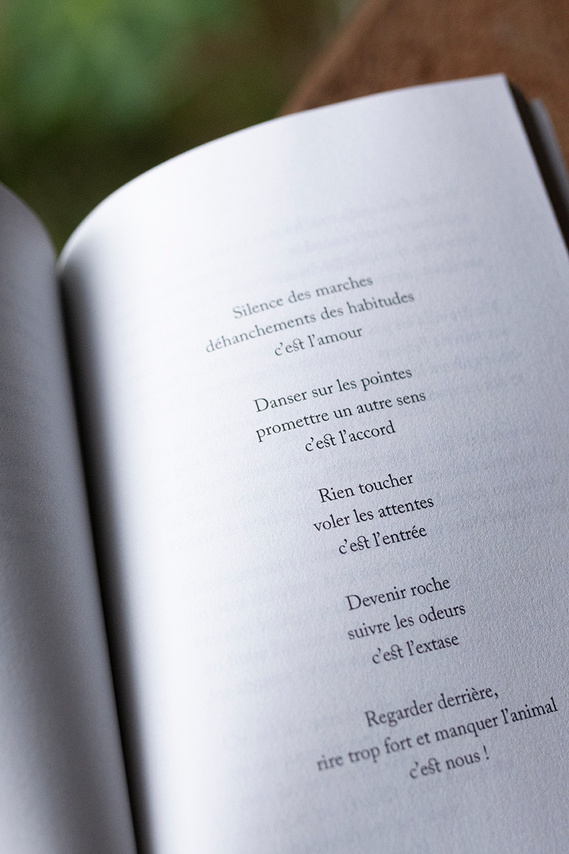 Silence des marches
déhanchements des habitudes
c'est l'amour
Danser sur les pointes
promettre un autre sens
c'est l'accord
Rien toucher
voler les attentes
c'est l'entrée
Devenir roche
suivre les odeurs
c'est l'extase
Regarder derrière,
rire trop fort et manquer l'animal
c'est nous !